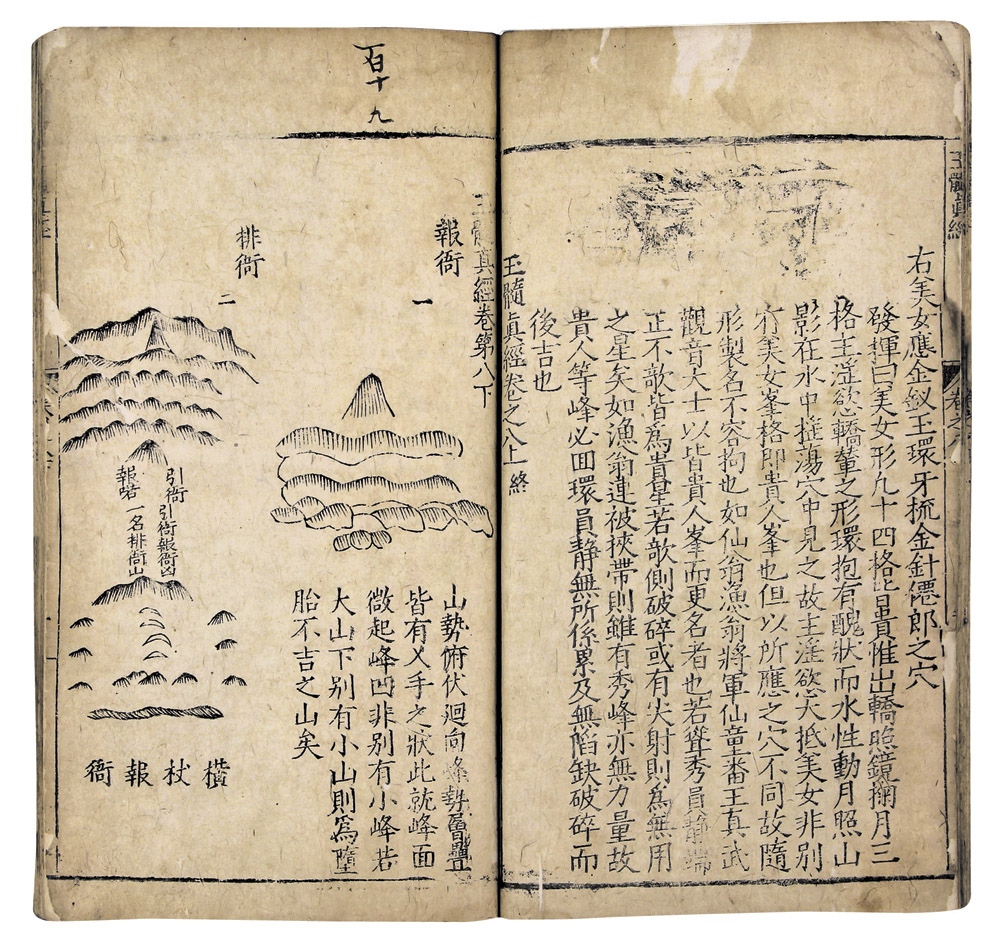 玉髓眞經
卷之八
右美女應金釵玉環牙梳金針僊郎之穴
發揮曰美女形九十四格皆貴惟出轎照鏡掬月三
格主淫慾轎輦之形環抱有醜狀而水性動月照山
影在水中搖蕩穴中見之故主淫慾大抵美女非別
有美女峯格即貴人峯也但以所應之穴不同故隨
形製名不容拘也如仙翁漁翁將軍仙童番王真武
觀音大士以皆貴人峯而更名者也若聳秀員靜端
正不欹皆爲貴星若欹側破碎或有尖射則爲無用
之星矣如漁翁連被挾帶則雖有秀峰亦無力量故
貴人等峰必囬環員靜無所係累及無陷缺破碎而
後吉也
玉髓眞經卷之八上終
百十九
玉髓真經卷第八下
報衙 一
山勢俯伏廻向峰勢層疊
皆有乂手之狀此就峰面
微起峰凹非别有小峰若
大山下别有小山則爲墮
胎不吉之山矣
排衙 二
引衙引衙報衙凶
報喏一名排衙山
橫杖報衙